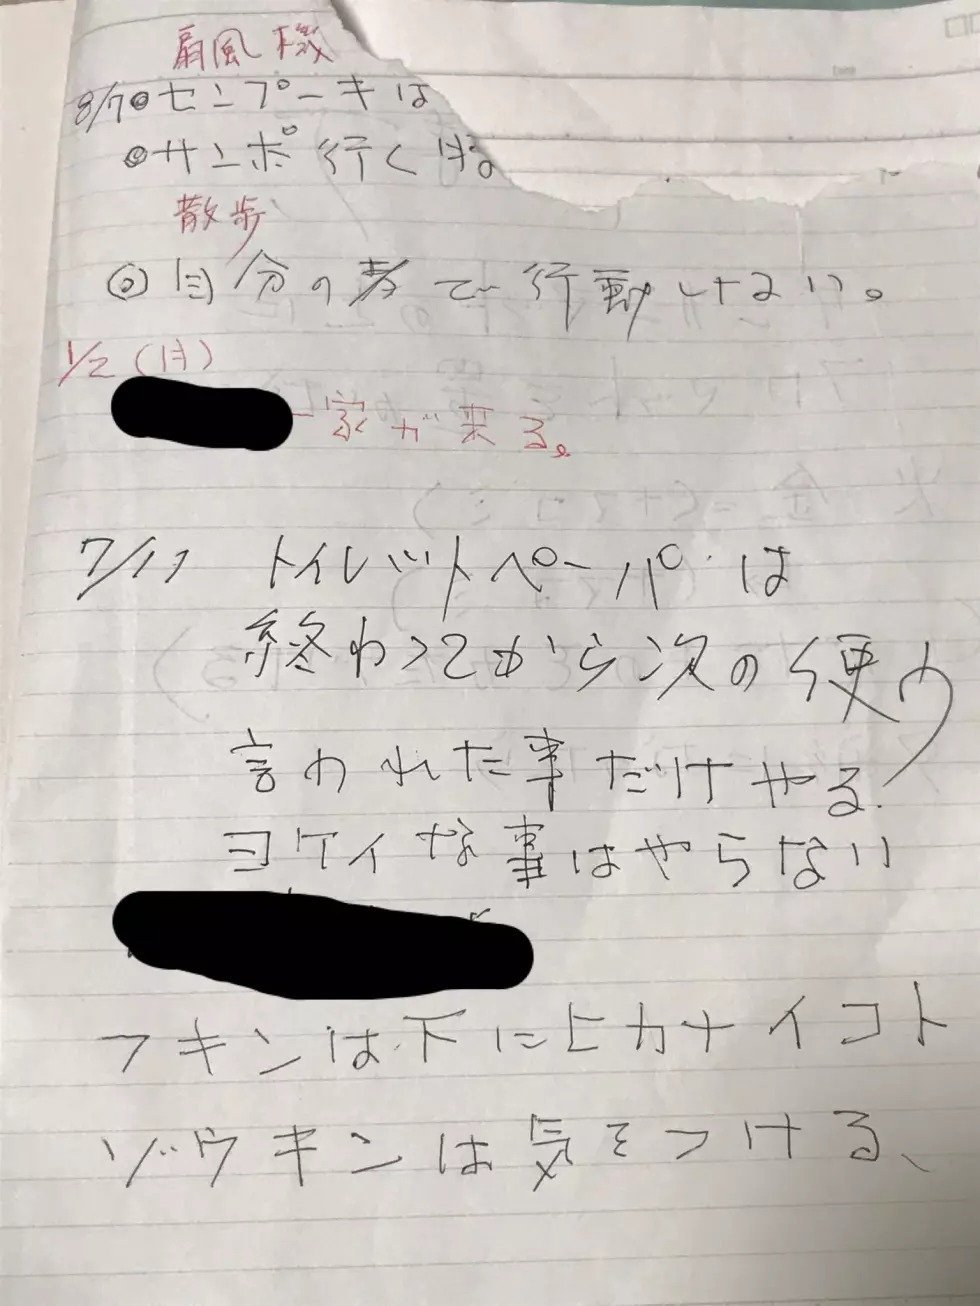 扇風機
8/7◎センプーキは
◎サンポ行くは。
散歩
◎自分の考で行動しない。
1/2(月)
一家が来る。
7/11 トイレットペーパーは
終わってから次の使う
言われた事だけやる.
ヨケイな事はやらない
フキンは下にヒカナイコト
ゾウキンは気をつける、